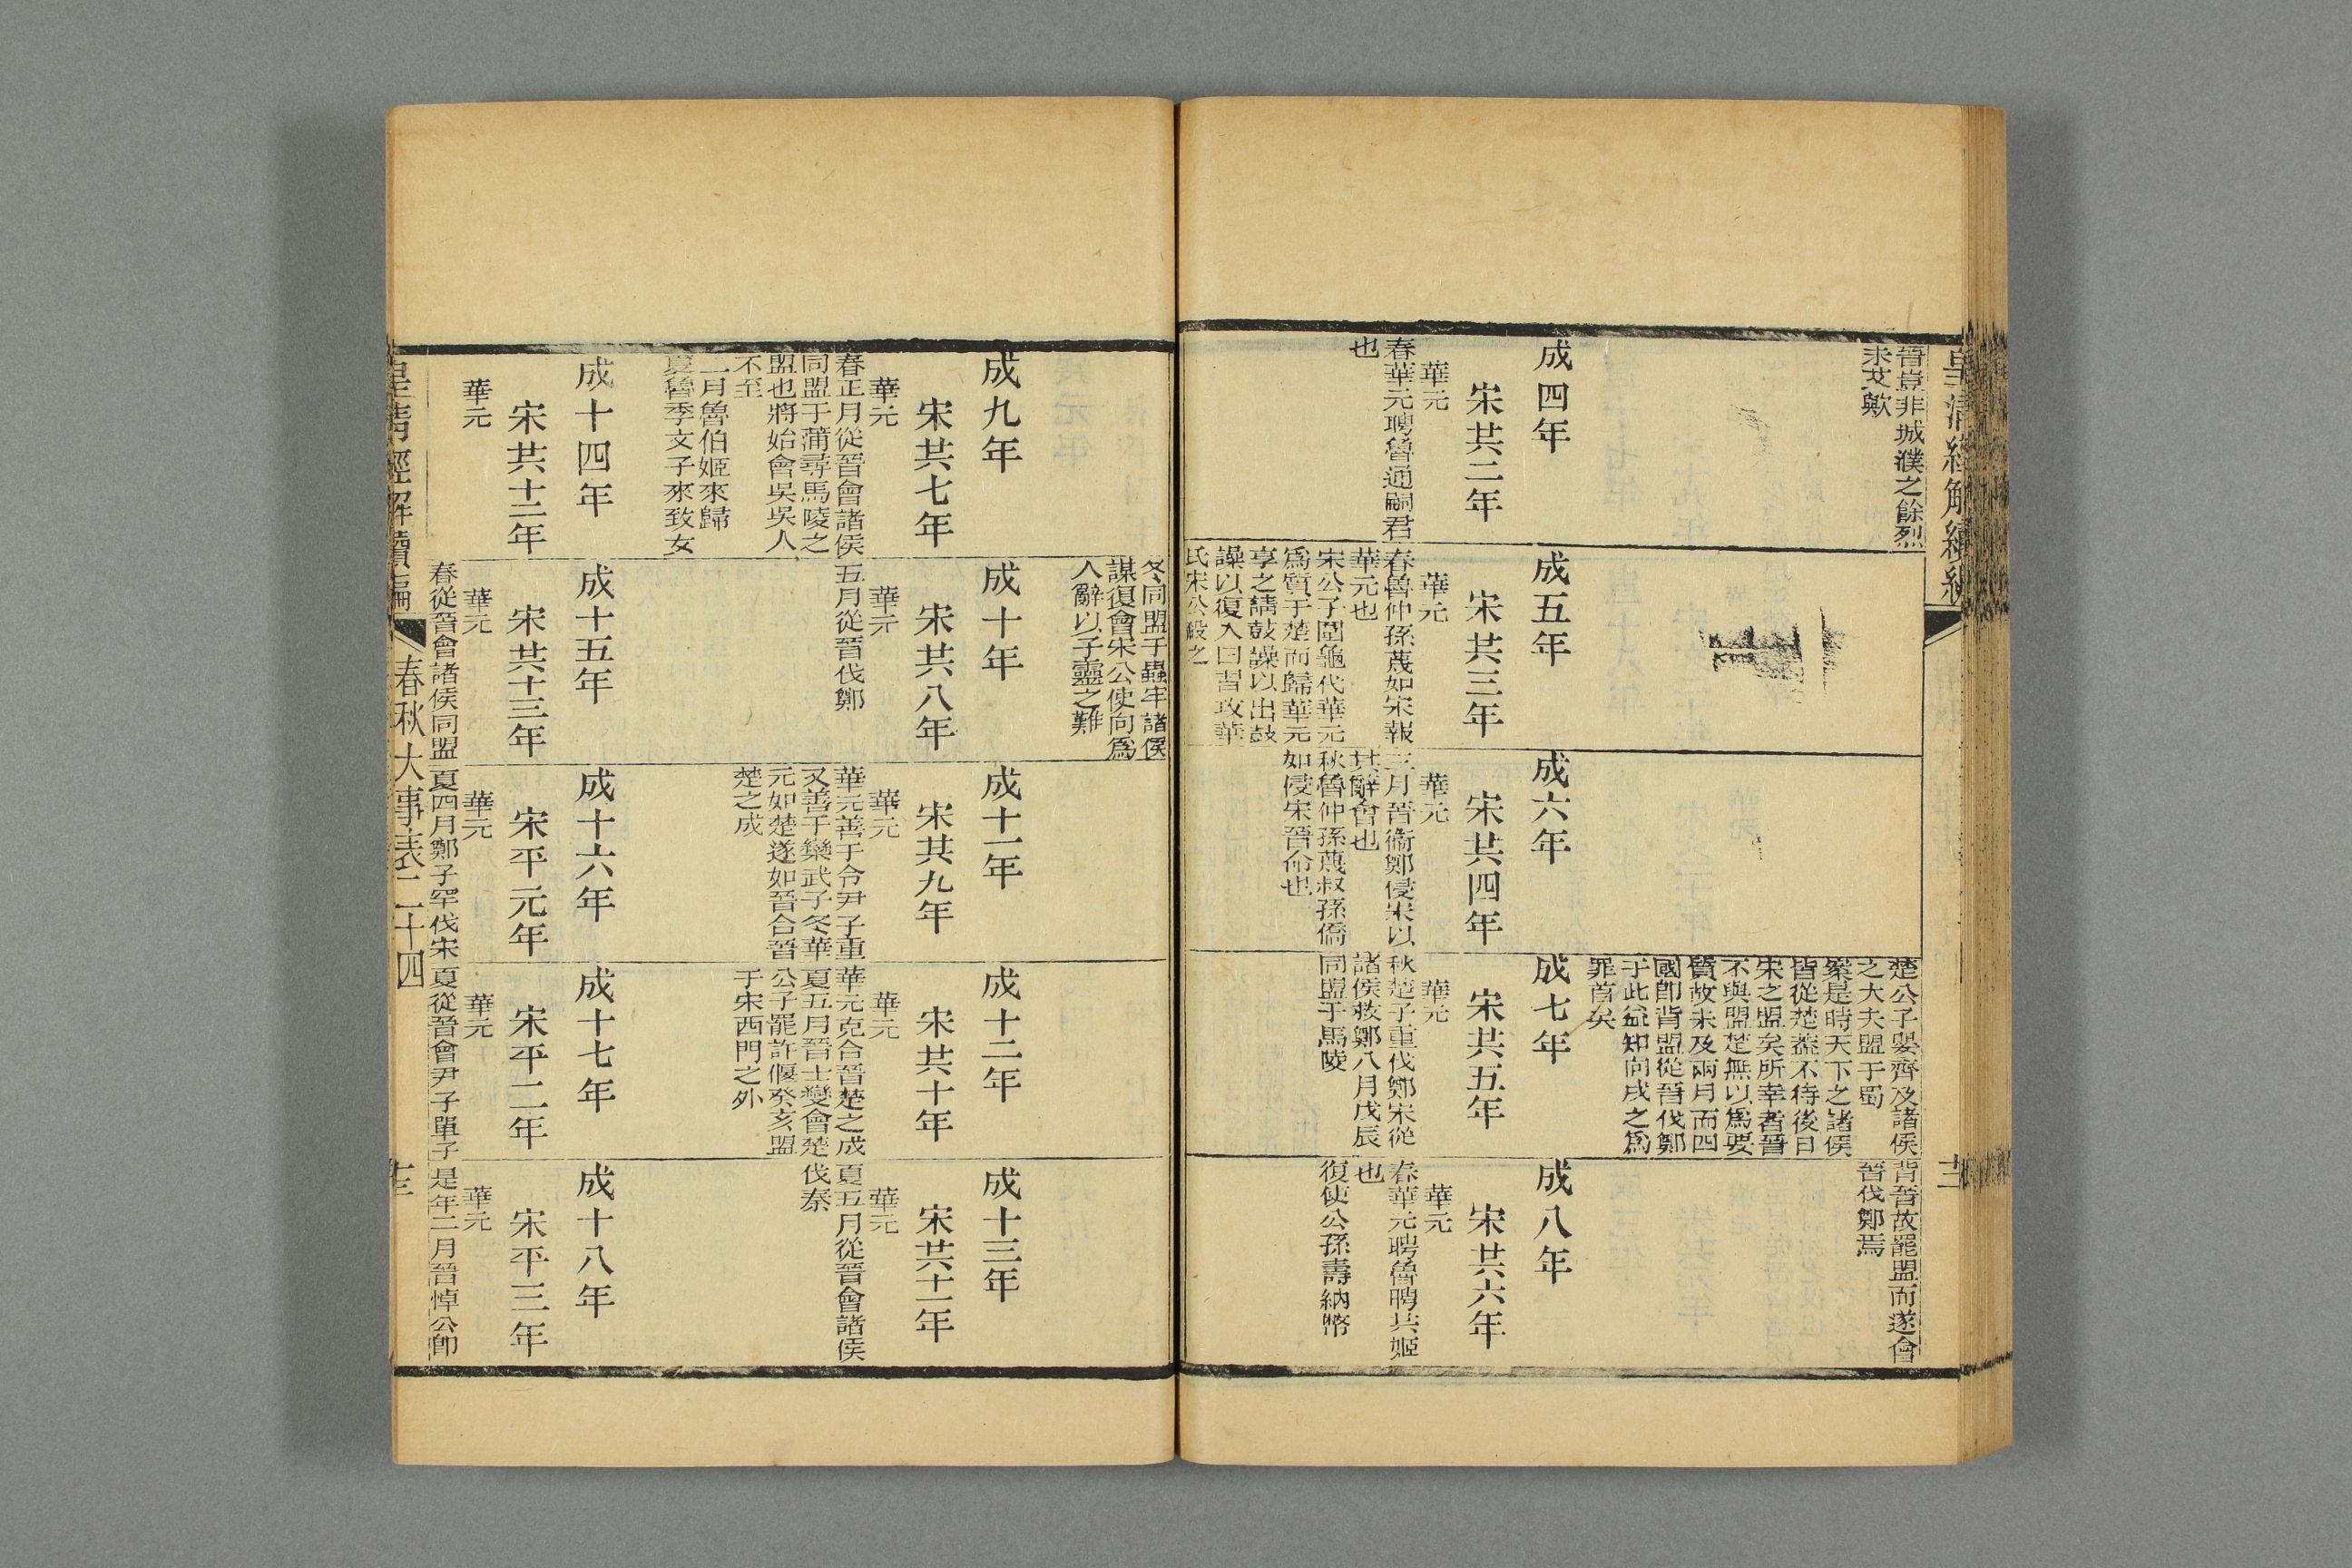 晉豈非城濮之餘烈
未艾歟
楚公子嬰齊及諸侯
之大夫盟于蜀
案是時天下之諸侯
皆從楚蓋不待後日
宋之盟矣所幸者晉
不與盟楚無以爲要
質故未及兩月而四
國卽背盟從晉伐鄭
于此益知向戌之爲
罪首矣
背晉故罷盟而遂會
晉伐鄭焉
成四年
宋共二年
華元
春華元聘魯通嗣君
也
成五年
宋共三年
華元
春魯仲孫蔑如宋報
華元也
宋公子圍龜代華元
爲質于楚而歸華元
享之請鼓譟以出鼓
譟以復入曰習攻華
氏宋公殺之
成六年
宋共四年
華元
三月晉衞鄭侵宋以
其辭會也
秋魯仲孫蔑叔孫僑
如侵宋晉命也
成七年
宋共五年
華元
秋楚子重伐鄭宋從
諸侯救鄭八月戊辰
同盟于馬陵
成八年
宋共六年
華元
春華元聘魯聘共姬
也
復使公孫壽納幣
冬同盟于蟲牢諸侯
謀復會宋公使向爲
人辭以子靈之難
成九年
宋共七年
華元
春正月從晉會諸侯
同盟于蒲尋馬陵之
盟也將始會吳吳人
不至
二月魯伯姬來歸
夏魯季文子來致女
成十年
宋共八年
華元
五月從晉伐鄭
成十一年
宋共九年
華元
華元善于令尹子重
又善于欒武子冬華
元如楚遂如晉合晉
楚之成
成十二年
宋共十年
華元
華元克合晉楚之成
夏五月晉士燮會楚
公子罷許偃癸亥盟
于宋西門之外
成十三年
宋共十一年
華元
夏五月從晉會諸侯
伐秦
成十四年
宋共十二年
華元
成十五年
宋共十三年
華元
春從晉會諸侯同盟
成十六年
宋平元年
華元
夏四月鄭子罕伐宋
成十七年
宋平二年
華元
夏從晉會尹子單子
成十八年
宋平三年
華元
是年二月晉悼公卽
皇淸經解續編
春秋大事表二十四